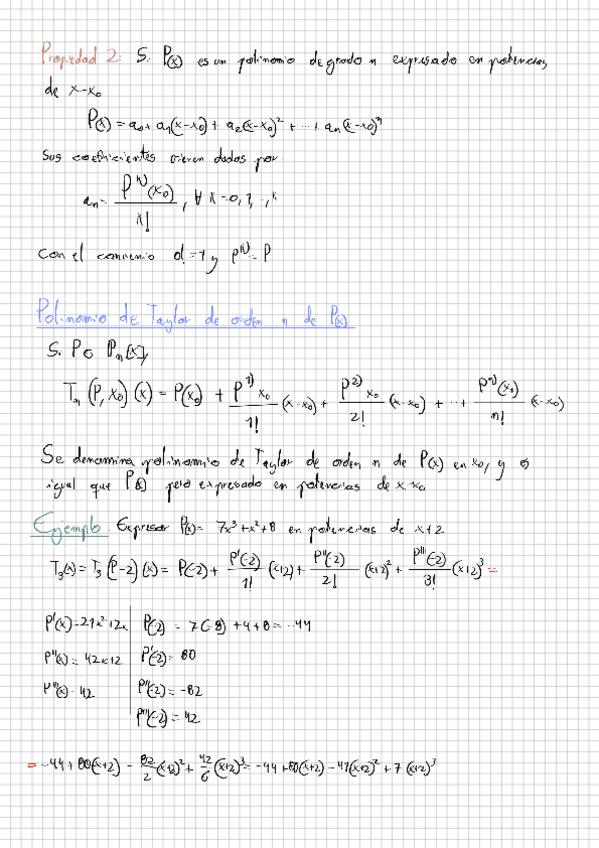 Propiedad 2: Si P(x) es un polinomio de grado n expresado en potencias
de x-x₀
P(x) = a₀ + a₁(x-x₀) + a₂(x-x₀)² + ... + aₙ(x-x₀)ⁿ
Sus coeficientes vienen dados por:
aₙ = P^(k)(x₀) / k! , ∀ k=0, 1, .., n
Con el convenio 0!=1 y P^(0) = P
Polinomio de Taylor de orden n de P(x)
Si P∈ Pₙ[x],
Tₙ(P, x₀)(x) = P(x₀) + P^1) x₀ / 1! (x-x₀) + P^2) x₀ / 2! (x-x₀) + ... + P^n)(x₀) / n! (x-x₀)
Se denomina polinomio de Taylor de orden n de P(x) en x₀, y es
igual que P(x) pero expresado en potencias de x-x₀
Ejemplo: Expresar P(x)= 7x³+x²+8 en potencias de x+2
T₃(x) = T₃(P-2)(x) = P(-2) + P'(-2) / 1! (x+2) + P''(-2) / 2! (x+2)² + P'''(-2) / 3! (x+2)³ =
P'(x) = 21x²+2x P(-2) = 7(-8)+4+8 = -44
P''(x) = 42x+2 P'(-2) = 80
P'''(x) = 42 P''(-2) = -82
P'''(-2) = 42
= -44+80(x+2) - 82/2 (x+2)² + 42/6 (x+2)³ = -44+80(x+2) - 41(x+2)² + 7(x+2)³